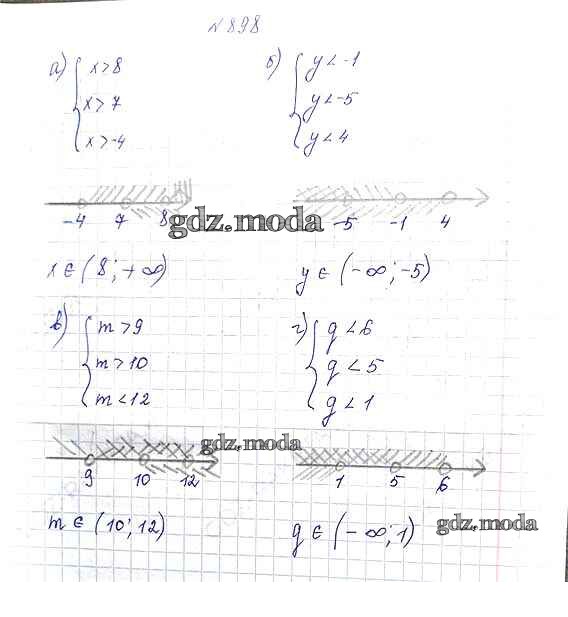 №898
а) { x > 8
x > 7
x > -4
б) { y < -1
y < -5
y < 4
-4 7 8
-5 -1 4
gdz.moda
x ∈ (8; +∞)
y ∈ (-∞; -5)
в) { m > 9
m > 10
m < 12
г) { g < 6
g < 5
g < 1
gdz.moda
9 10 12
1 5 6
m ∈ (10; 12)
g ∈ (-∞; 1)
gdz.moda